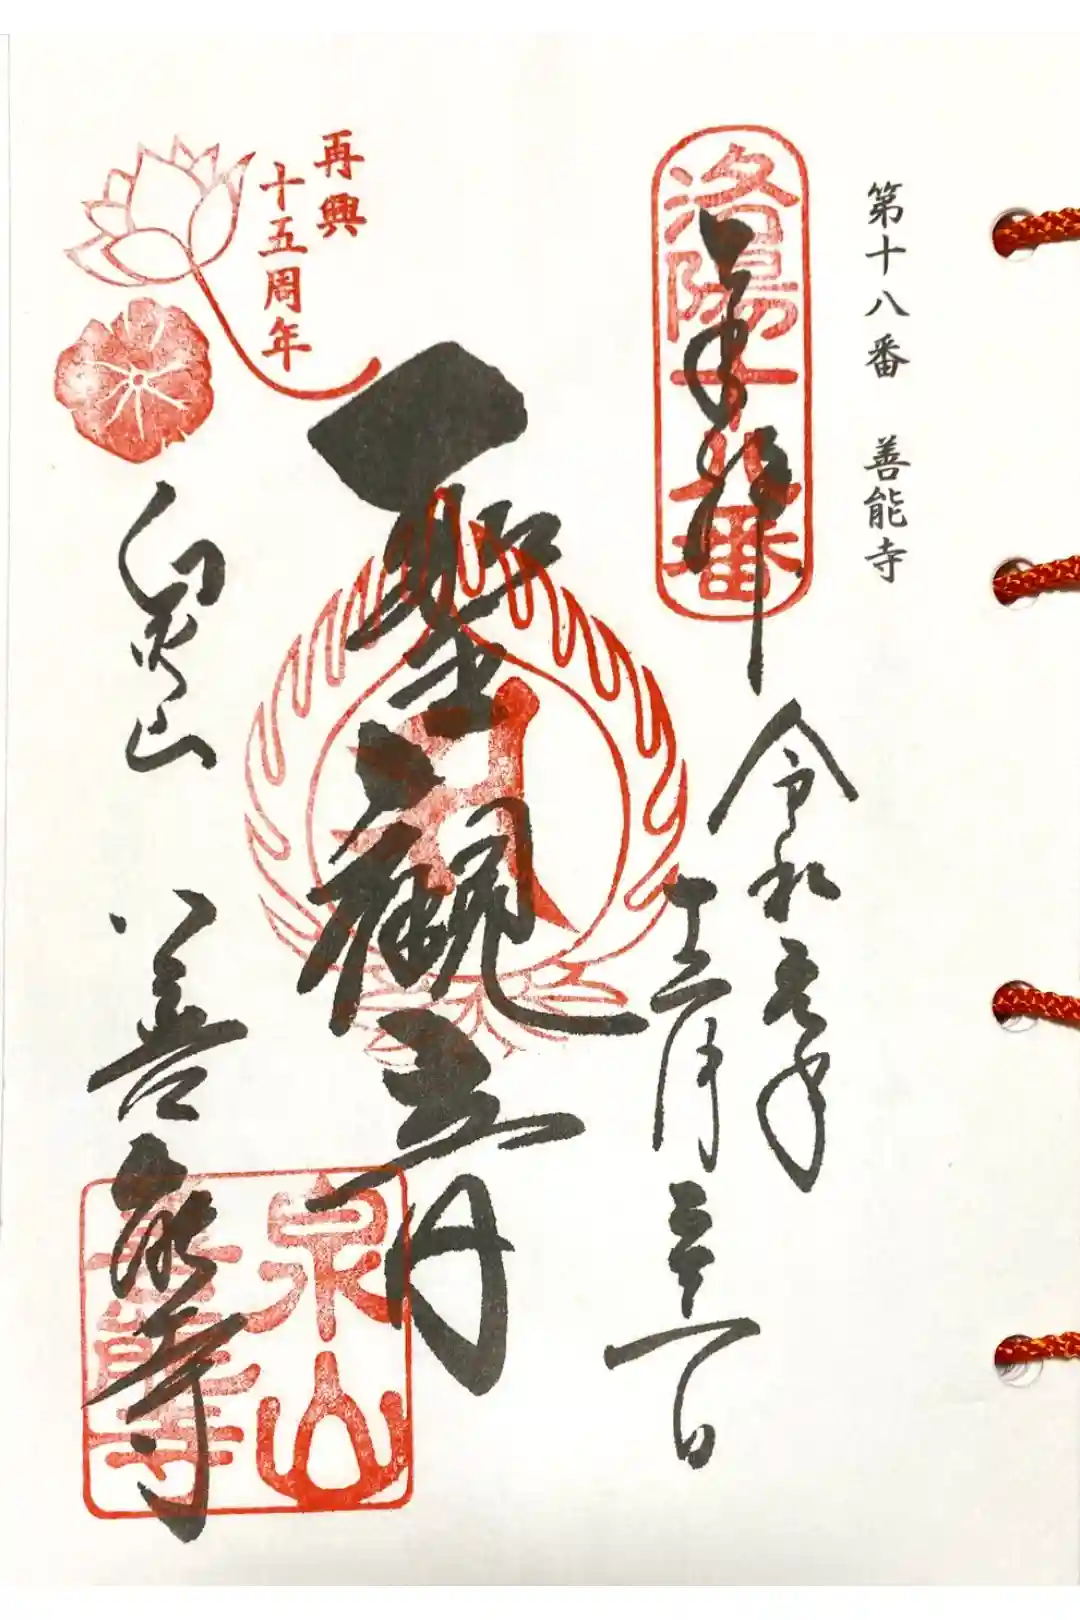 第十八番 善能寺
洛陽十八番
奉拝
令和五年
十二月三十一日
再興
十五周年
聖観音
泉山
善能寺
泉山
善能寺